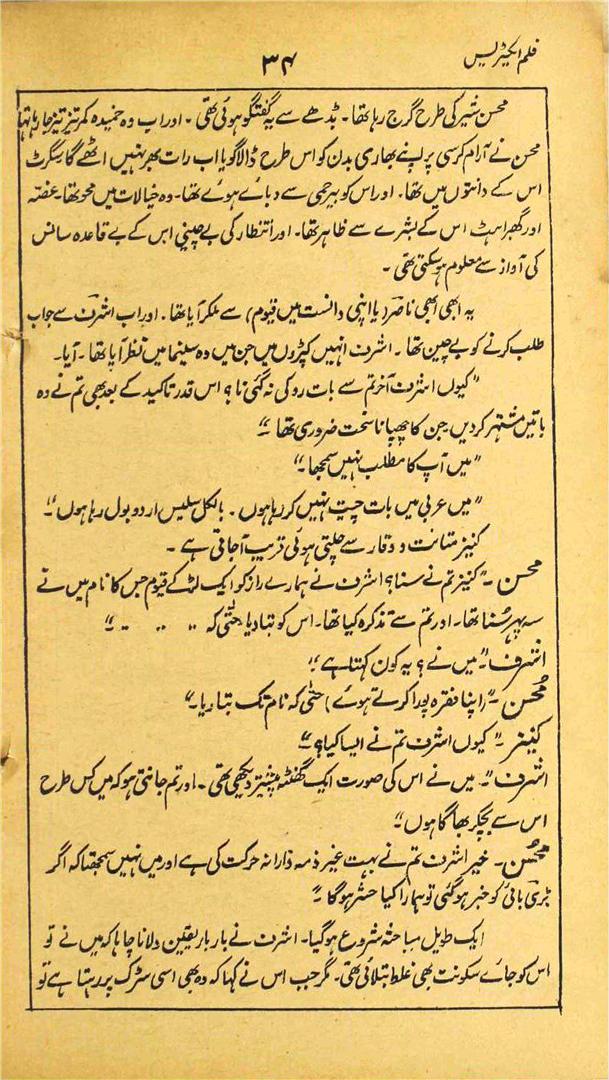 فلم ایکٹریس
۳۴
محسن شیر کی طرح گرج رہا تھا۔ بڈھے سے یہ گفتگو ہوئی تھی۔ اور اب وہ خمیدہ کمر تیز تیز جا رہا تھا
محسن نے آرام کرسی پر اپنے بھاری بدن کو اس طرح ڈالا گویا اب رات بھر نہیں اٹھے گا سگرٹ
اس کے دانتوں میں تھا۔ اور اس کو بیرحمی سے دبائے ہوئے تھا۔ وہ خیالات میں محو تھا۔ غصّہ
اور گھبراہٹ اس کے بشرے سے ظاہر تھا۔ اور انتظار کی بے چینی اس کے بے قاعدہ سانس
کی آواز سے معلوم ہو سکتی تھی۔
یہ ابھی ابھی ناصر (یا اپنی دانست میں قیوم) سے ملکر آیا تھا۔ اور اب اشرف سے جواب
طلب کرنے کو بے چین تھا۔ اشرف انہیں کپڑوں میں جن میں وہ سینما میں نظر آیا تھا۔ آیا۔
”کیوں اشرف آخر تم سے بات روکی نہ گئی نا؟ اس قدر تاکید کے بعد بھی تم نے وہ
باتیں مشتہر کر دیں جن کا چھپانا سخت ضروری تھا۔“
”میں آپ کا مطلب نہیں سمجھا۔“
”میں عربی میں بات چیت نہیں کر رہا ہوں۔ بالکل سلیس اردو بول رہا ہوں“۔
کنیز متانت و وقار سے چلتی ہوئی قریب آجاتی ہے۔
محسن۔ ”کنیز تم نے سنا؟ اشرف نے ہمارے راز کو ایک لڑکے قیوم جس کا نام میں نے
سہ پہر سُنا تھا۔ اور تم سے تذکرہ کیا تھا۔ اس کو بتا دیا حتٰی کہ ۔۔ ۔۔ ۔۔ ۔۔“
اشرف ”۔ میں نے؟ یہ کون کہتا ہے“
مُحسن۔ ”(اپنا فقرہ پورا کرتے ہوئے) حتٰی کہ نام تک بتا دیا۔“
کنیز۔ ”کیوں اشرف تم نے ایسا کیا؟“
اشرف ”۔ میں نے اس کی صورت ایک گھنٹہ پیشتر دیکھی تھی۔ اور تم جانتی ہو کہ میں کس طرح
اس سے بچکر بھاگا ہوں“۔
محُسن۔ خیر اشرف تم نے بہت غیر ذمہ دارانہ حرکت کی ہے اور میں نہیں سمجھتا کہ اگر
بڑی بائی کو خبر ہو گئی تو ہمارا کیا حشر ہو گا۔“
ایک طویل مباحثہ شروع ہو گیا۔ اشرف نے بار بار یقین دلانا چاہا کہ میں نے تو
اس کو جائے سکونت بھی غلط بتلائی تھی۔ مگر جب اس نے کہا کہ وہ بھی اسی سڑک پر رہتا ہے تو